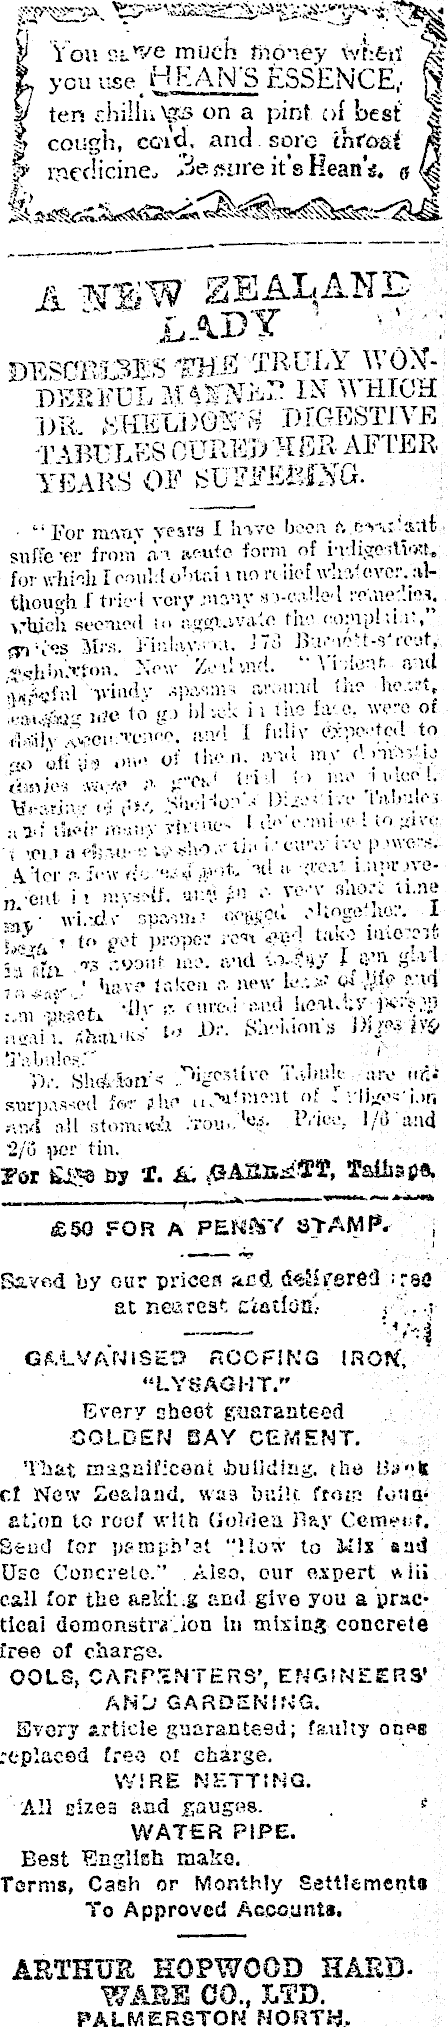 You save much money when
you use HEAN'S ESSENCE,
ten shillings on a pint of best
cough, cold, and sore throat
medicine. Be sure it's Hean's.
A NEW ZEALAND
LADY
DESCRIBES THE TRULY WON-
DERFUL MANNER IN WHICH
DR. SHELDON'S DIGESTIVE
TABULES CURED HER AFTER
YEARS OF SUFFERING.
"For many years I have been a constant
sufferer from an acute form of indigestion,
for which I could obtain no relief whatever, al-
though I tried very many so-called remedies,
which seemed to aggravate the complaint,"
writes Mrs. Finlayson, 173 Burnett-street,
Ashburton, New Zealand. "Violent and
painful windy spasms around the heart,
causing me to go black in the face, were of
daily occurrence, and I fully expected to
go off in one of them, and my domestic
duties were a great trial to me indeed.
Hearing of Dr. Sheldon's Digestive Tabules
and their many virtues I determined to give
them a chance to show their curative powers.
After a few doses I noticed a great improve-
ment in myself, and in a very short time
my windy spasms ceased altogether. I
began to get proper rest and take interest
in things about me, and to-day I am glad
to say I have taken a new lease of life and
am practically a cured and healthy person
again, thanks to Dr. Sheldon's Digestive
Tabules."
Dr. Sheldon's Digestive Tabules are un-
surpassed for the treatment of Indigestion
and all stomach troubles. Price, 1/6 and
2/6 per tin.
For Sale by T. A. GARRETT, Taihape.
£50 FOR A PENNY STAMP.
Saved by our prices and delivered free
at nearest station.
GALVANISED ROOFING IRON,
"LYSAGHT."
Every sheet guaranteed
GOLDEN BAY CEMENT.
That magnificent building, the Bank
of New Zealand, was built from foun-
ation to roof with Golden Bay Cement.
Send for pamphlet "How to Mix and
Use Concrete." Also, our expert will
call for the asking and give you a prac-
tical demonstration in mixing concrete
free of charge.
OOLS, CARPENTERS', ENGINEERS'
AND GARDENING.
Every article guaranteed; faulty ones
replaced free of charge.
WIRE NETTING.
All sizes and gauges.
WATER PIPE.
Best English make.
Terms, Cash or Monthly Settlements
To Approved Accounts.
ARTHUR HOPWOOD HARD-
WARE CO., LTD.
PALMERSTON NORTH.